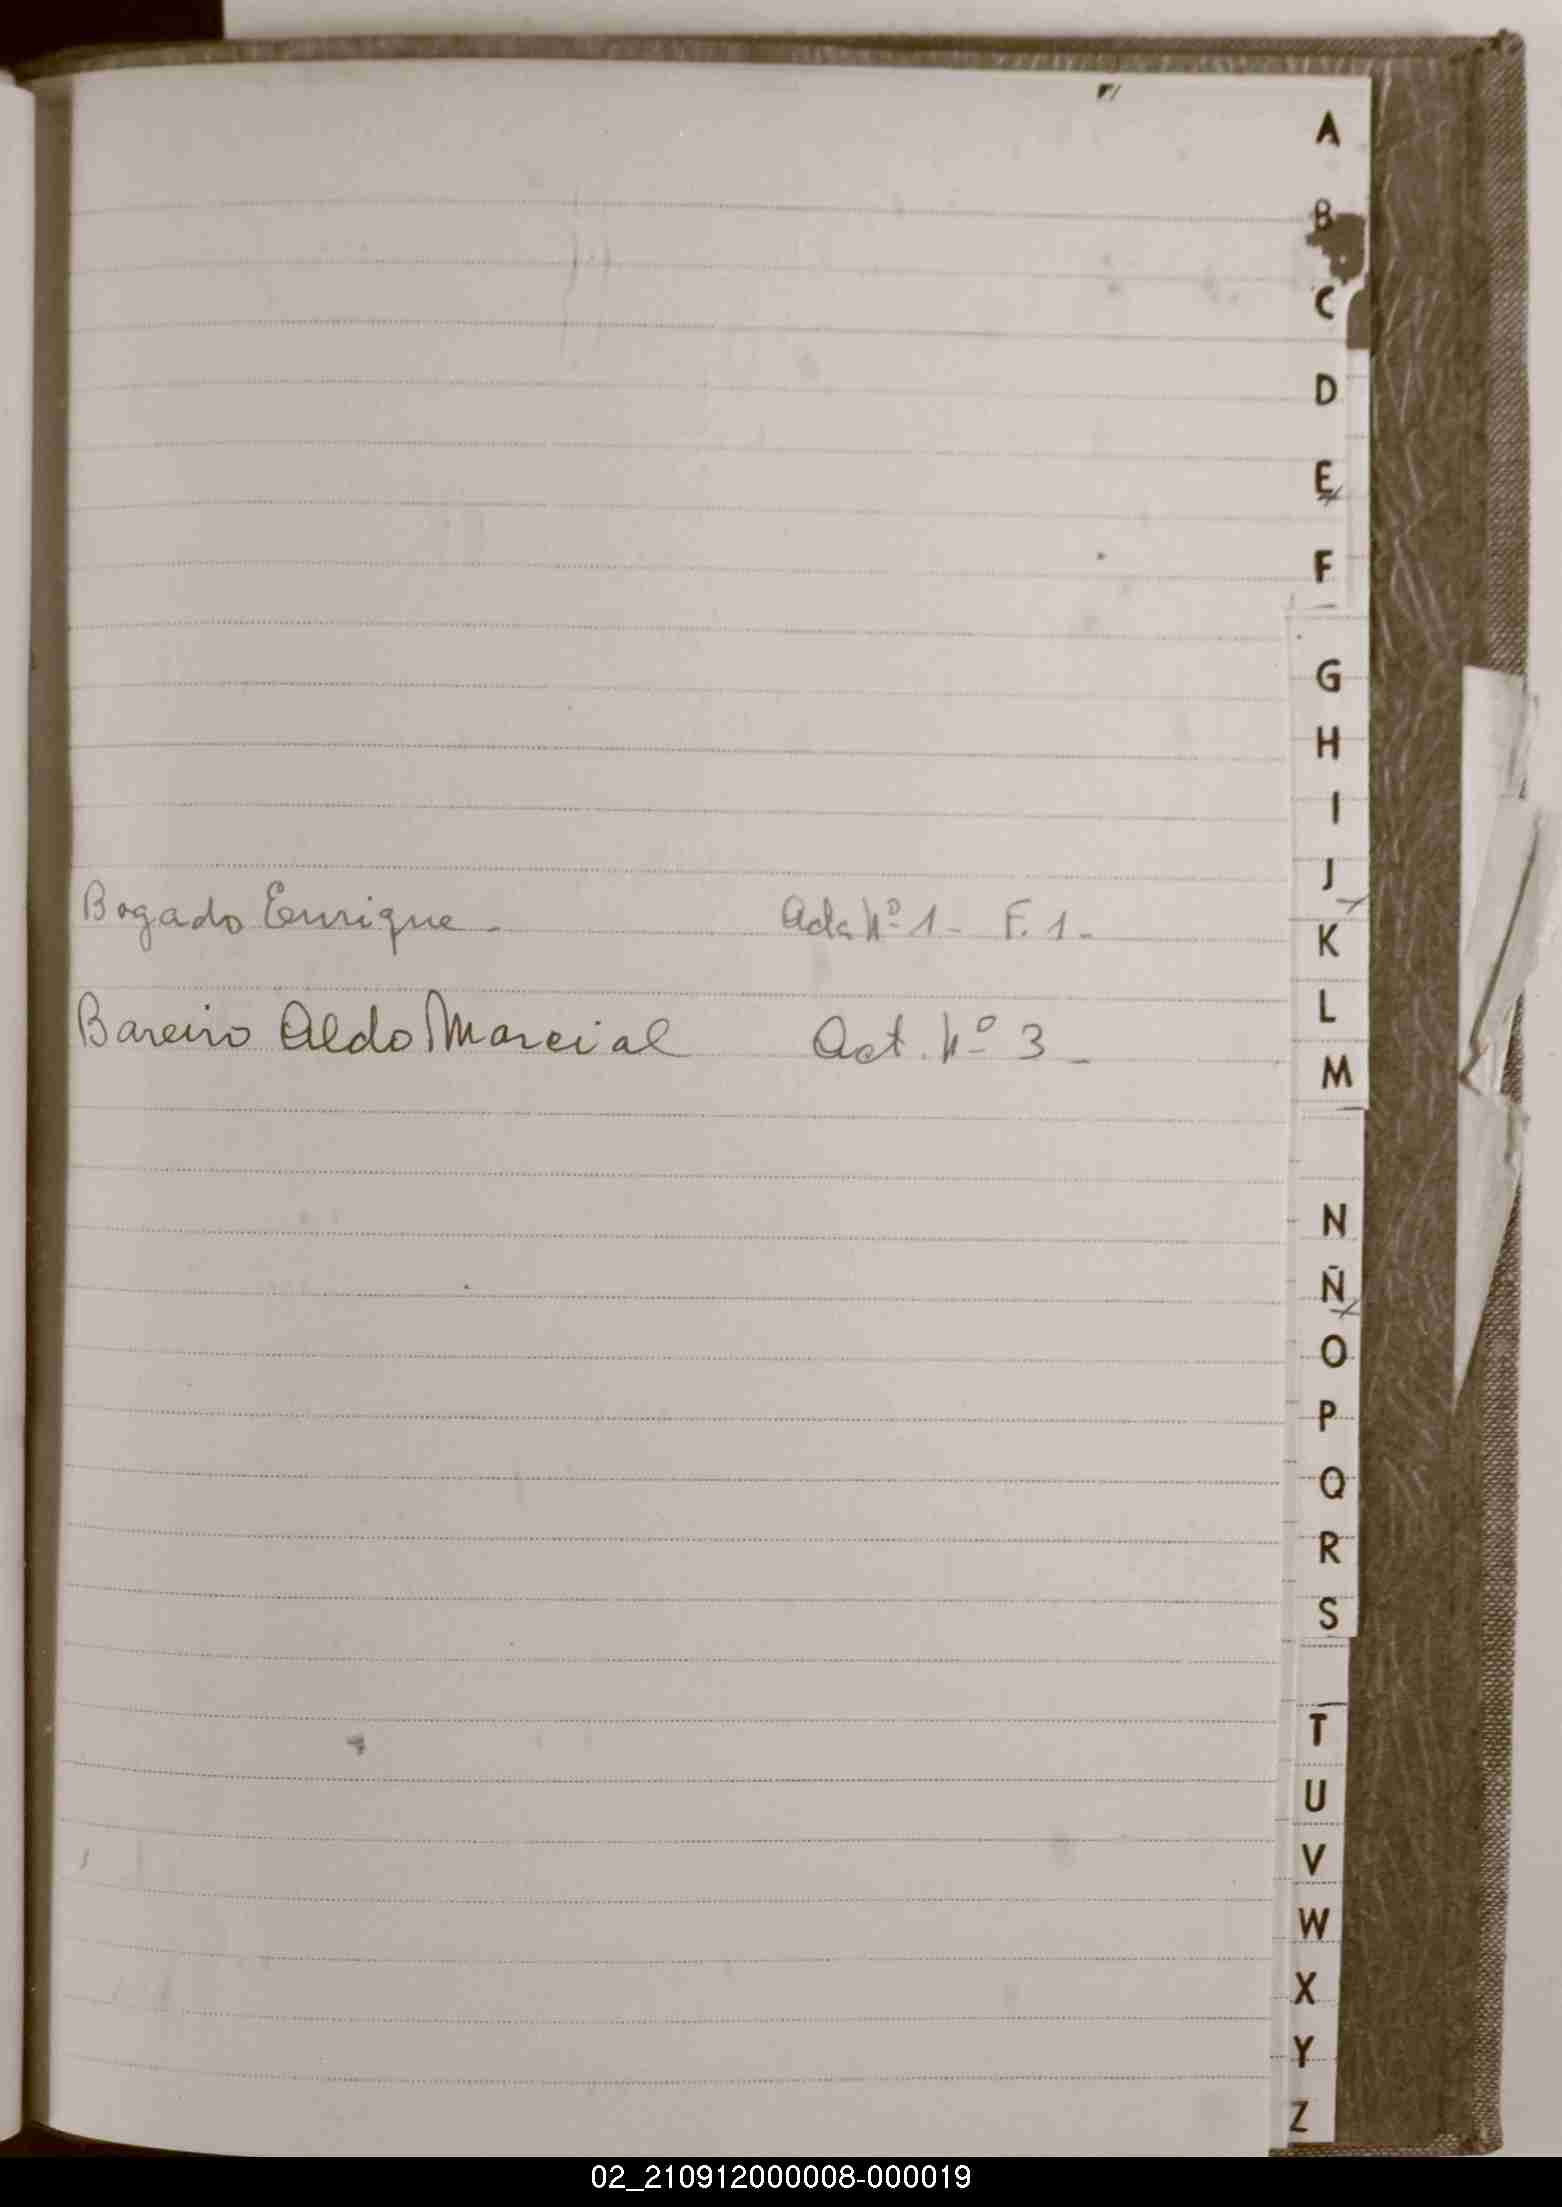 A
B
C
D
E
F
G
H
I
J
Bogado Enrique - Acta Nº 1 - F. 1 -
K
L
Bareiro Aldo Marcial Act. Nº 3 -
M
N
Ñ
O
P
Q
R
S
T
U
V
W
X
Y
Z
02_210912000008-000019